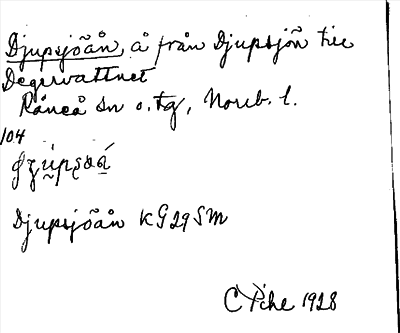 Djupsjöån, å från Djupsjön till
Degervattnet
Råneå sn o. tg, Norrb. l.
104
Djupsjöån KG29SM
1928